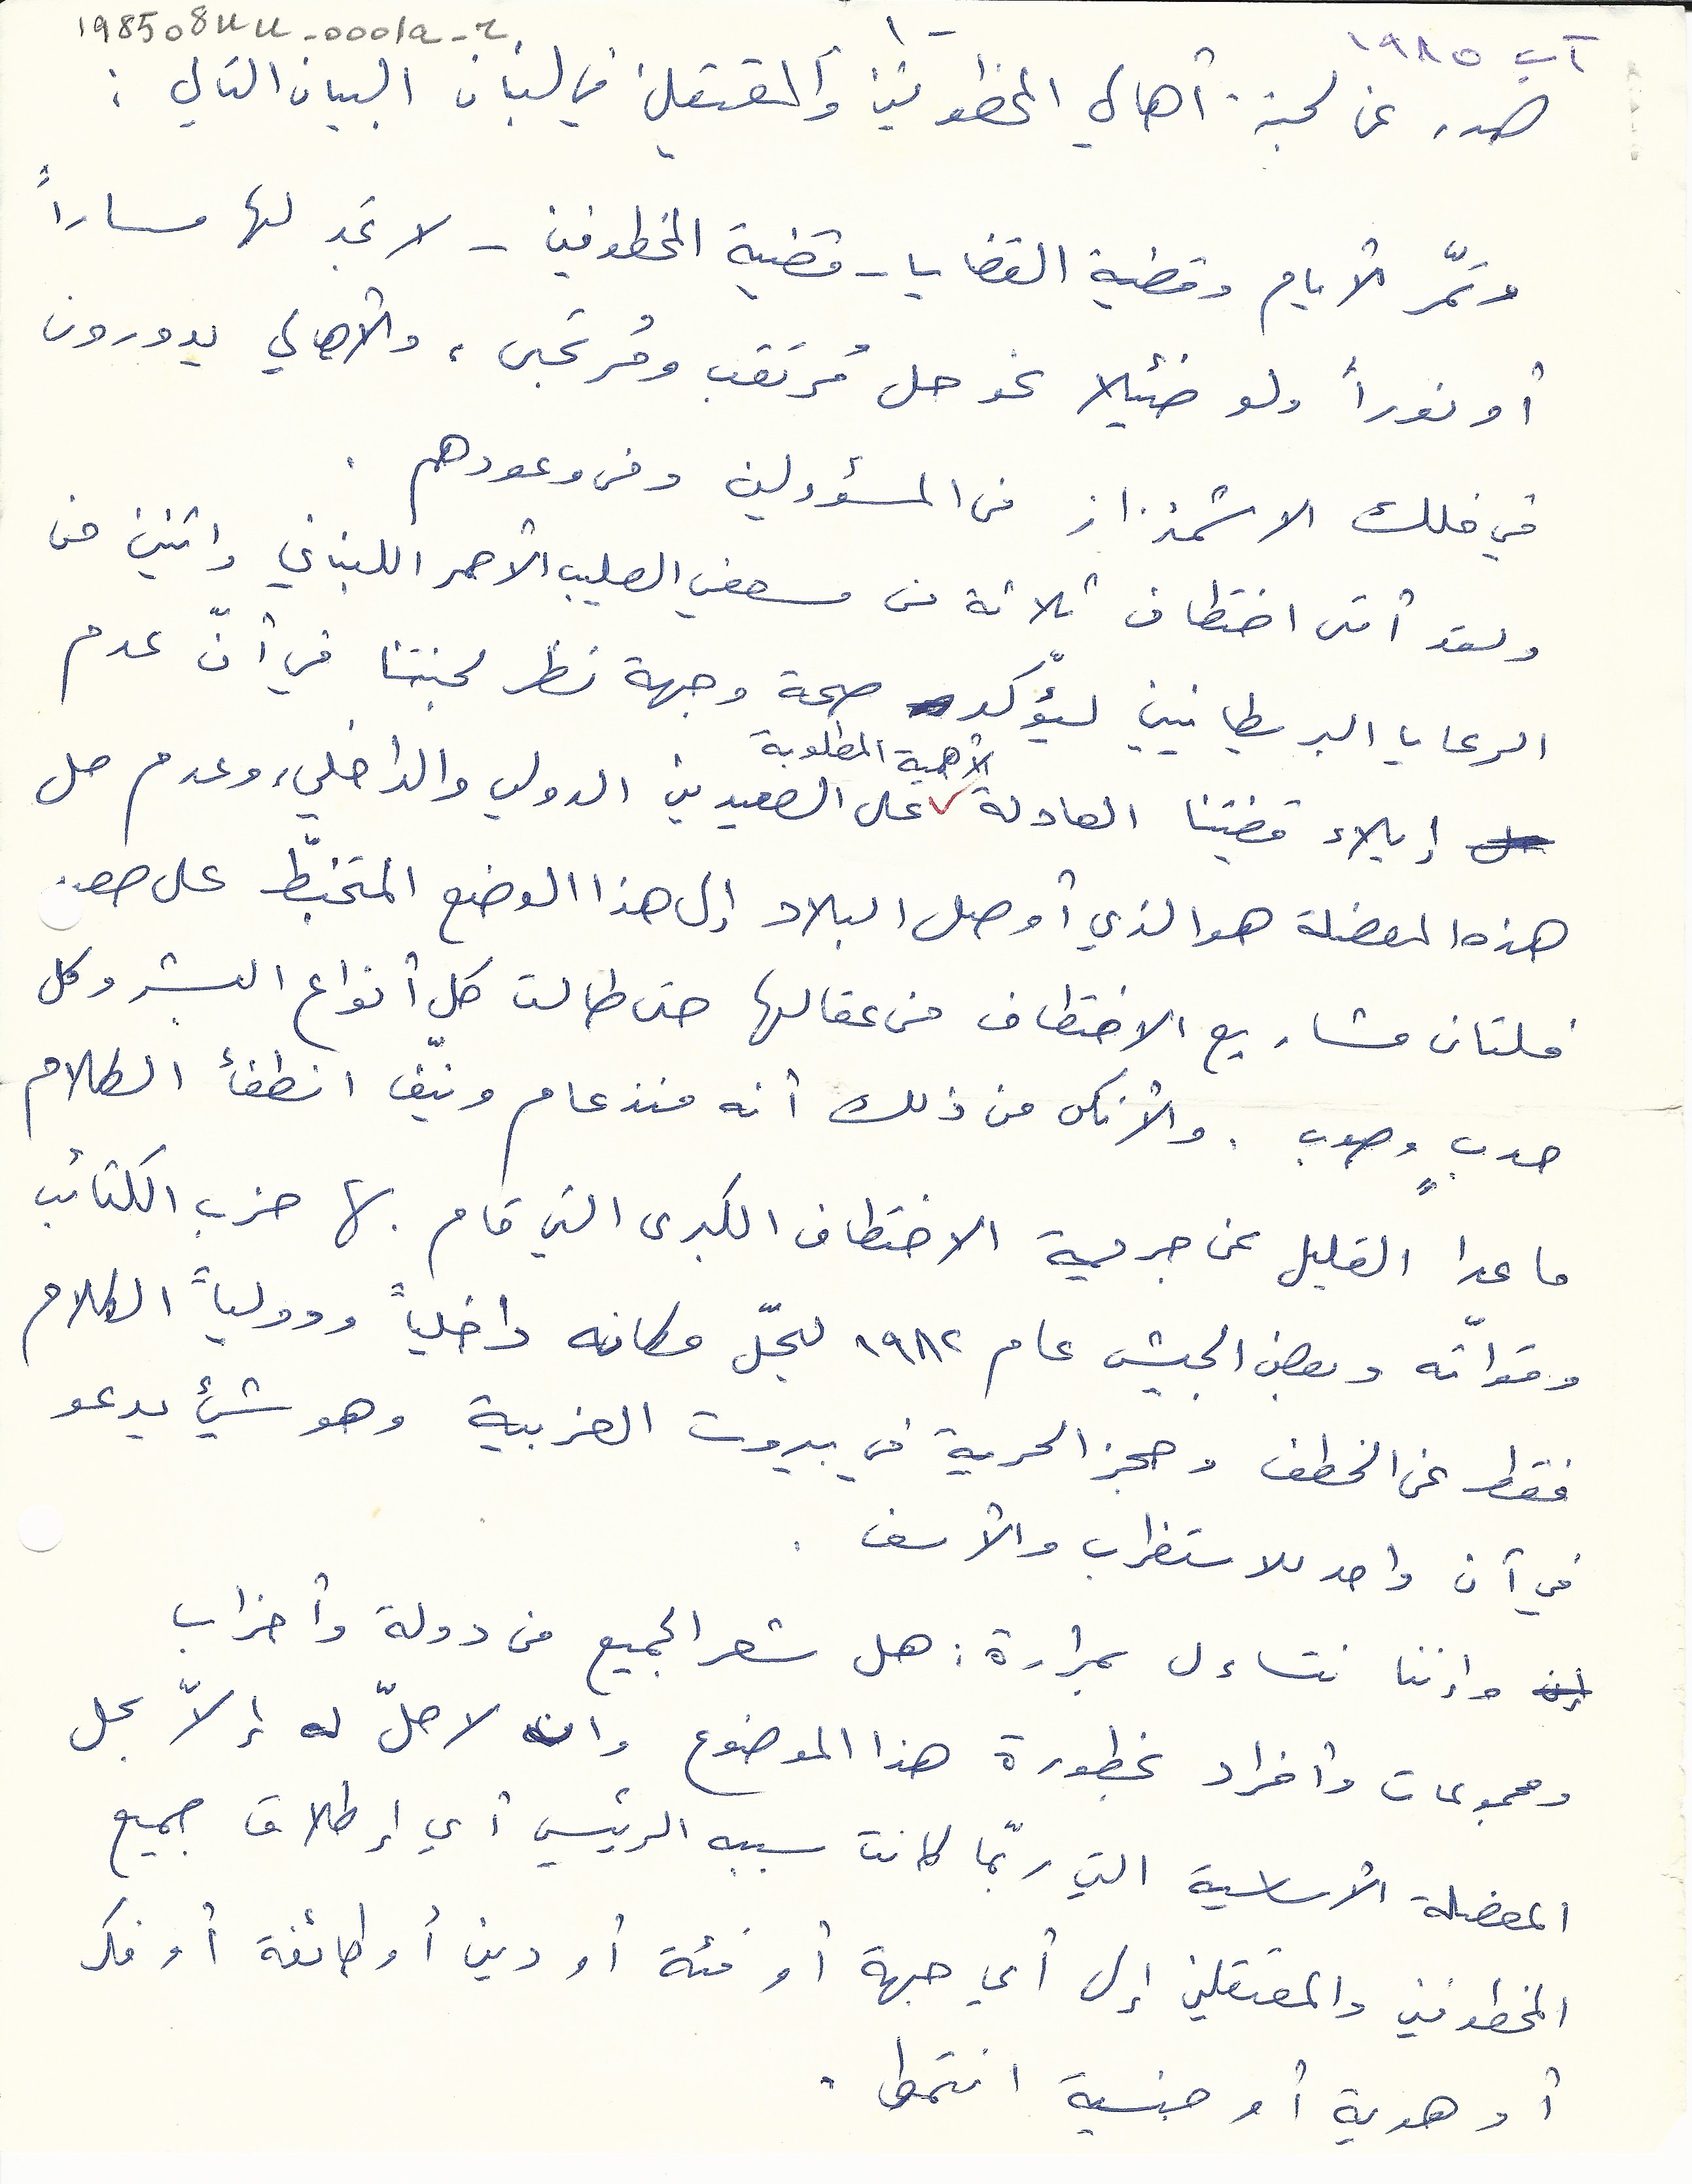 198508uu_0001a_r
- ١
آب ١٩٨٥
صدر عن لجنة أهالي المخطوفين والمعتقلين في لبنان البيان التالي :
وتمّر الأيام وقضية القضايا - قضية المخطوفين - لا تجد لها مساراً
أو نوراً ولو ضئيلا نحو حل مُرتَقب ومُرتَجى ، والأهالي يدورون
في فلك الاشمئزاز من المسؤولين ومن وعودهم .
ولقد أتى اختطاف ثلاثة من مسعفي الصليب الأحمر اللبناني واثنين من
الرعايا البريطانيين ليؤكّد صحة وجهة نظر لجنتنا في أنّ عدم
إيلاء قضيتنا العادلة الأهمية المطلوبة على الصعيدين الدولي والداخلي، وعدم حل
هذه المعضلة هو الذي أوصل البلاد إلى هذا الوضع المتخبّط على صعيد
فلتان مشاريع الاختطاف من عقالها حتى طالت كل أنواع البشر وكل
حدبٍ وصوب . والأنكى من ذلك أنه منذ عام ونيّف انطفأ الكلام
ما عدا القليل عن جريمة الاختطاف الكبرى التي قام بها حزب الكتائب
وقواته وبعض الجيش عام ١٩٨٢ ليحلّ مكانه داخلياً ودولياً الكلام
فقط عن الخطف وحجز الحرية في بيروت الغربية وهو شيئ يدعو
في آن واحد للاستغراب والأسف .
وإننا نتساءل بمرارة : هل شعر الجميع من دولة وأحزاب
ومجموعات وأفراد بخطورة هذا الموضوع وانه لا حلّ له إلاّ بحل
المعضلة الأساسية التي ربّما كانت سببه الرئيسي أي إطلاق جميع
المخطوفين والمعتقلين إلى أي جهة أو فئة أو دين أو طائفة أو فكر
أو هوية أو جنسية انتموا .